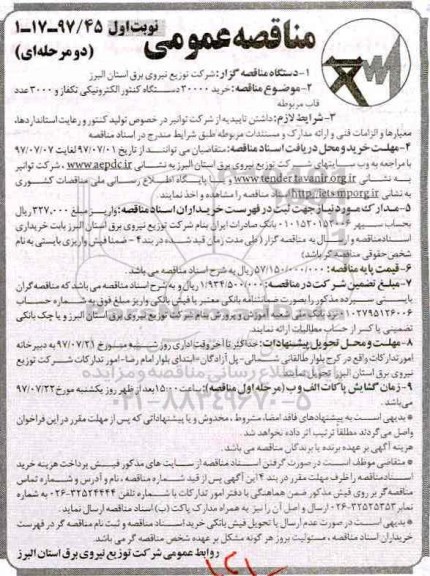 مناقصه عمومی
نوبت اول ۹۷/۴۵-۱۷-۱
(دو مرحله‌ای)
۱-دستگاه مناقصه گزار: شرکت توزیع نیروی برق استان البرز
۲-موضوع مناقصه: خرید ۳۰۰۰۰ دستگاه کنتور الکترونیکی تکفاز و ۳۰۰۰ عدد
قاب مربوطه
۳-شرایط لازم: داشتن تاییدیه از شرکت توانیر در خصوص تولید کنتور و رعایت استانداردها،
معیارها و الزامات فنی و ارائه مدارک و مستندات مربوطه طبق شرایط مندرج در اسناد مناقصه
۴-مهلت خرید و محل دریافت اسناد مناقصه: متقاضیان می توانند از تاریخ ۹۷/۰۷/۰۱ لغایت ۹۷/۰۷/۰۷
با مراجعه به وب سایتهای شرکت توزیع نیروی برق استان البرز به نشانی www.aepdc.ir ، شرکت توانیر
به نشانی www.tender.tavanir.org.ir و یا پایگاه اطلاع رسانی ملی مناقصات کشوری
به نشانی http://iets.mporg.ir اسناد مناقصه را مشاهده و اخذ نمایند.
۵-مدارک مورد نیاز جهت ثبت در فهرست خریداران اسناد مناقصه: واریز مبلغ ۳۲۷,۰۰۰ ریال
بحساب سپهر ۰۱۰۱۵۲۰۱۵۳۰۰۶ بانک صادرات ایران بنام شرکت توزیع نیروی برق استان البرز بابت خریداری
اسناد مناقصه و ارسال به مناقصه گزار (طی مدت زمان قید شده در بند ۴ - ضمنا فیش واریزی بایستی به نام
شخص حقوقی مناقصه گر باشد)
۶-قیمت پایه مناقصه: ۵۷/۱۵۰/۰۰۰/۰۰۰ ریال به شرح اسناد مناقصه می باشد.
۷-مبلغ تضمین شرکت در مناقصه: ۱/۹۲۴/۵۰۰/۰۰۰ ریال و به شرح اسناد مناقصه می باشد که مناقصه گران
بایستی سپرده مذکور را بصورت ضمانتنامه بانکی معتبر یا فیش بانکی واریز مبلغ فوق به شماره حساب
۰۱۰۲۷۹۵۱۲۶۰۰۶ نزد بانک ملی شعبه آموزش و پرورش بنام شرکت توزیع نیروی برق استان البرز و یا چک بانکی
تضمینی یا کسر از حساب مطالبات ارائه نمایند.
۸-مهلت و محل تحویل پیشنهادات: حداکثر تا آخر وقت اداری روز شنبه مورخ ۹۷/۰۷/۲۱ به دبیرخانه
امور تدارکات واقع در کرج بلوار طالقانی شمالی-پل آزادگان-ابتدای بلوار امام رضا-امور تدارکات شرکت توزیع
نیروی برق استان البرز تحویل نمایند
۹-زمان گشایش پاکات الف و ب (مرحله اول مناقصه): ساعت ۱۵:۰۰ بعد از ظهر روز یکشنبه مورخ ۹۷/۰۷/۲۲
می باشد.
* بدیهی است به پیشنهادهای فاقد امضا، مشروط، مخدوش و یا پیشنهاداتی که پس از مهلت مقرر در این فراخوان
واصل می گردند مطلقاً ترتیب اثر داده نخواهد شد.
هزینه آگهی بر عهده برنده یا برندگان مناقصه می باشد.
* متقاضی موظف است در صورت گرفتن اسناد مناقصه از سایت های مذکور فیش پرداخت هزینه خرید
اسناد مناقصه را ظرف مهلت مقرر در بند ۴ این آگهی پس از قید شماره مناقصه، نام و آدرس و شماره تماس
مناقصه گر بر روی فیش مذکور ضمن هماهنگی با دفتر امور تدارکات با شماره تلفن ۳۲۵۲۴۴۴۴-۰۲۶ به شماره
نمابر ۳۲۵۲۵۳۵۳-۰۲۶ ارسال و اصل آن را نیز به همراه مدارک پاکت (ب) اسناد مناقصه ارسال نماید.
* بدیهی است در صورت عدم ارسال یا تحویل فیش بانکی خرید اسناد مناقصه و ثبت نام مناقصه گر در فهرست
خریداران اسناد مناقصه ، مسئولیت بروز هر گونه مشکل بر عهده شخص مناقصه گر می باشد.
روابط عمومی شرکت توزیع نیروی برق استان البرز
۰۲۱-۸۸۳۴۹۶۷۰-۵